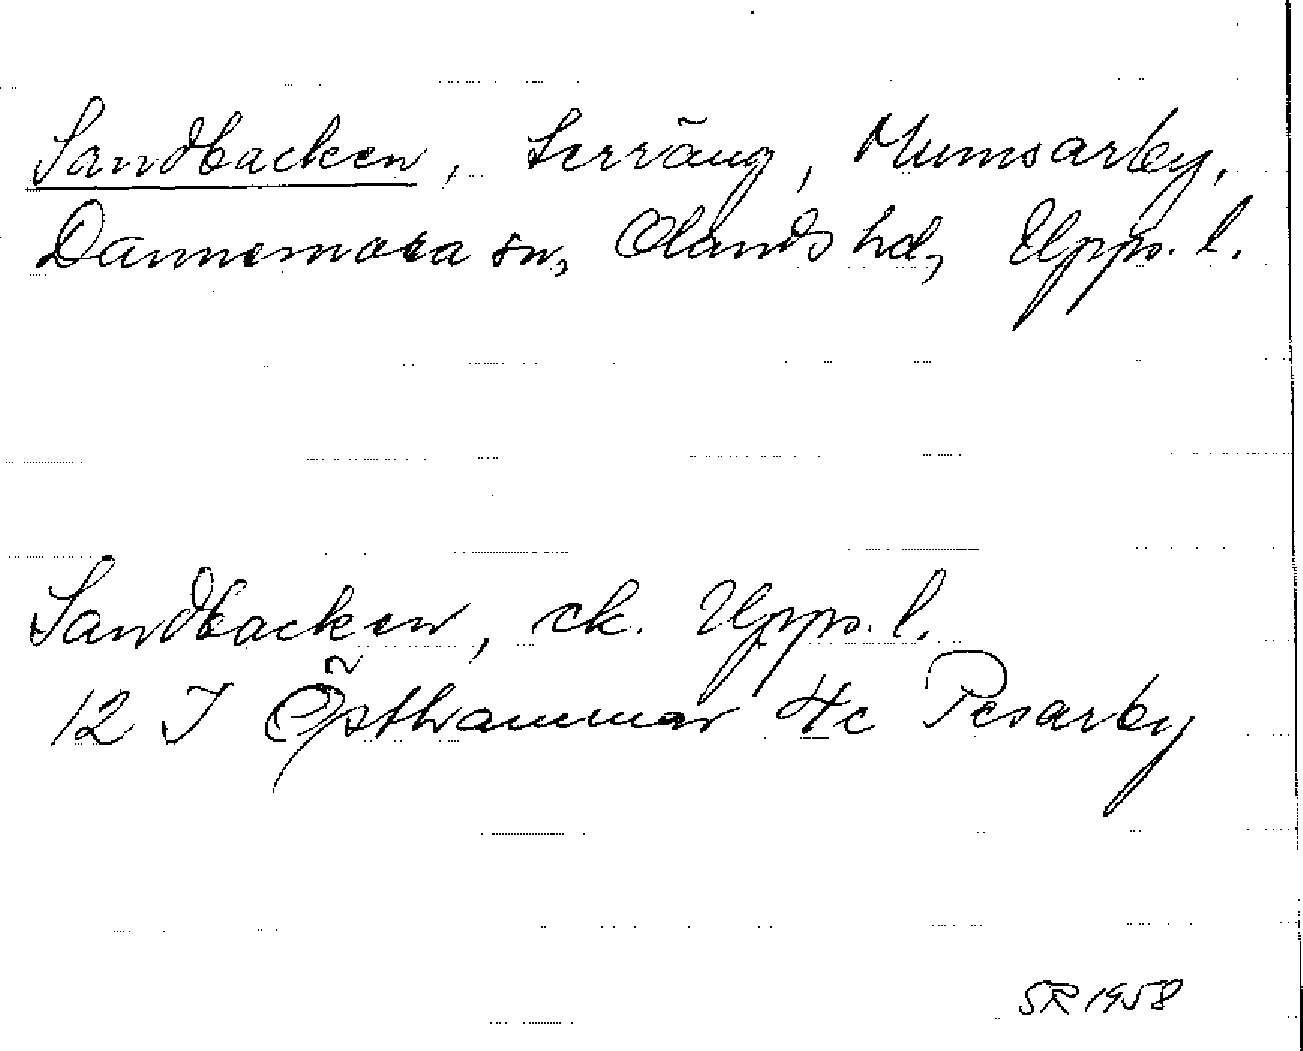 Sandbacken, terräng, Mumsarby,
Dannemora sn, Olands hd, Upps. l.
Sandbacken, ek. Upps. l.
12 I Östhammar 4c Pesarby
SR 1958